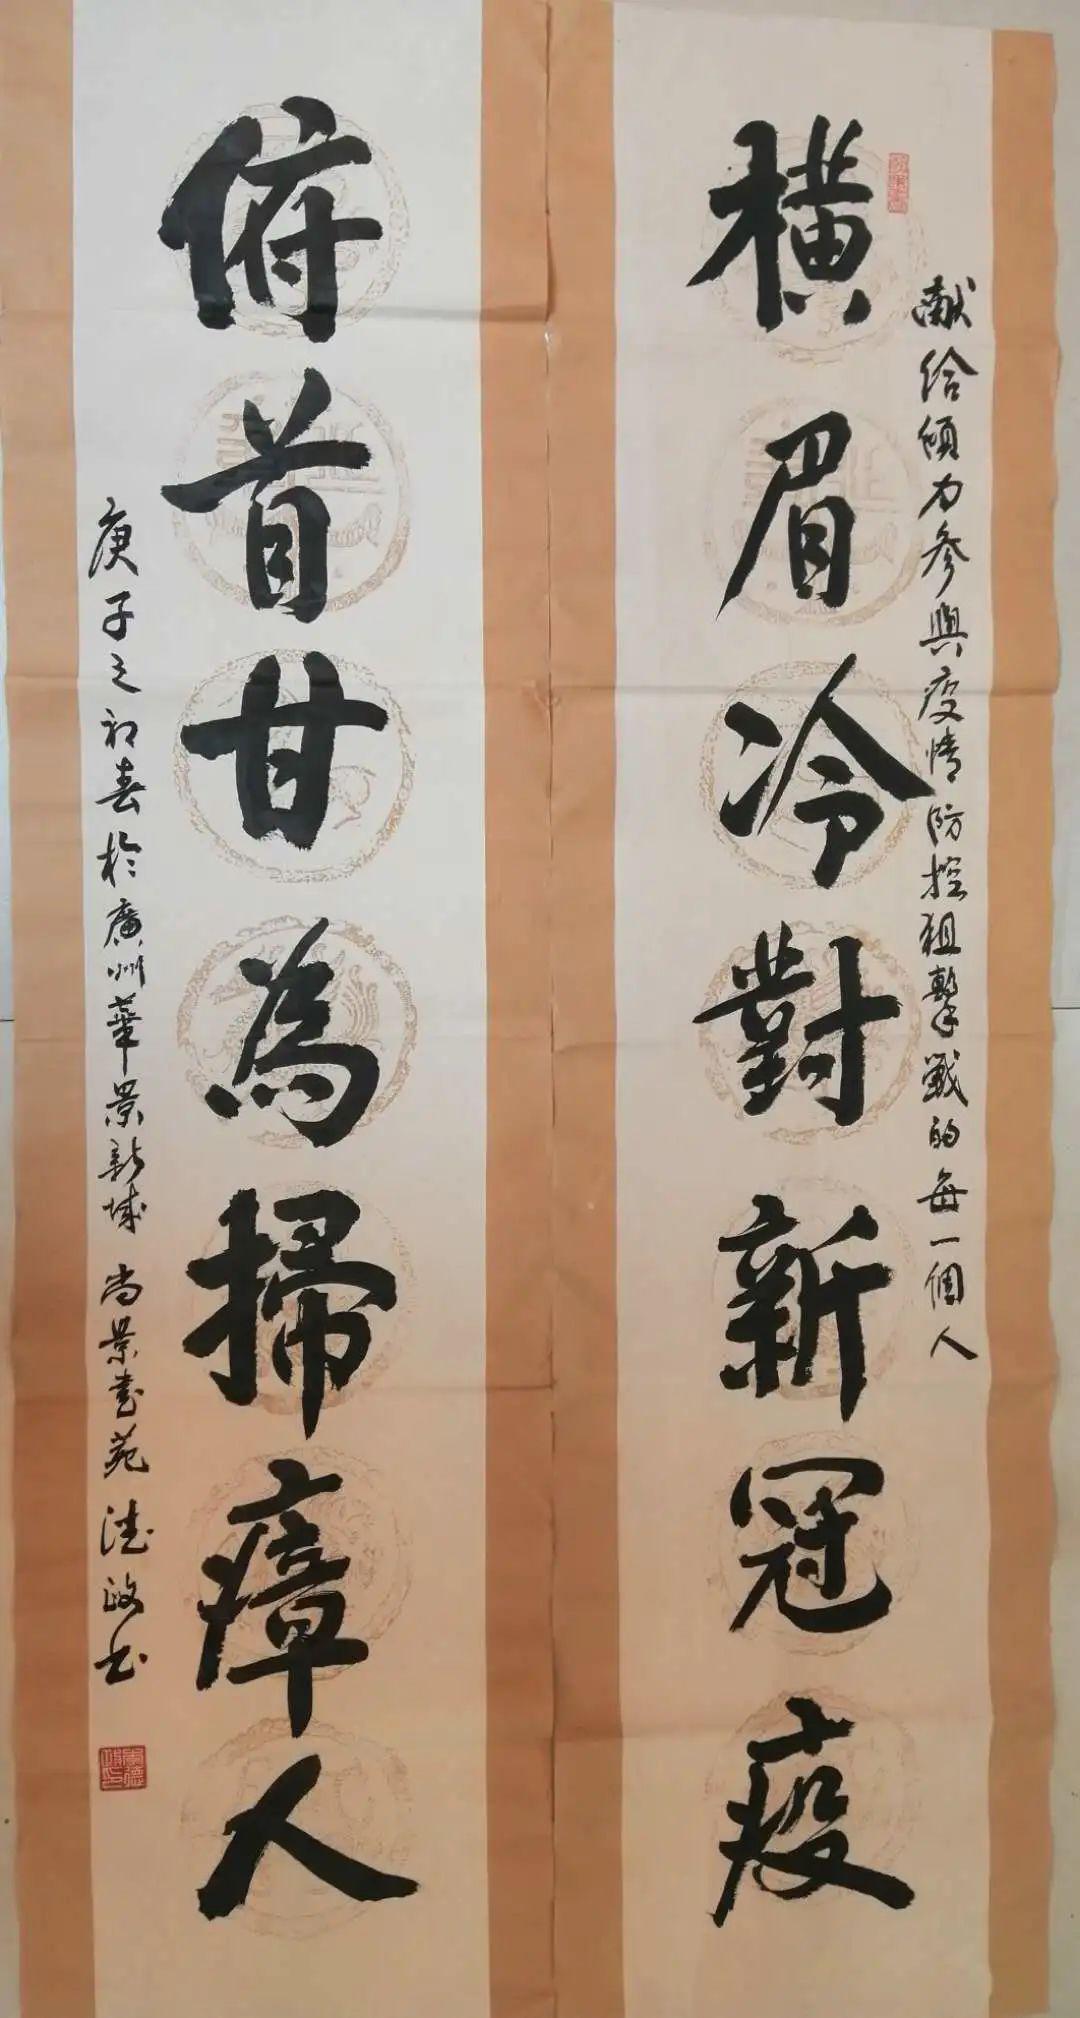 獻给傾力參與疫情防控狙擊戰的每一個人
橫眉冷對新冠疫
俯首甘為掃瘴人
庚子之初春於廣州華景新城 尚景书苑 德政书